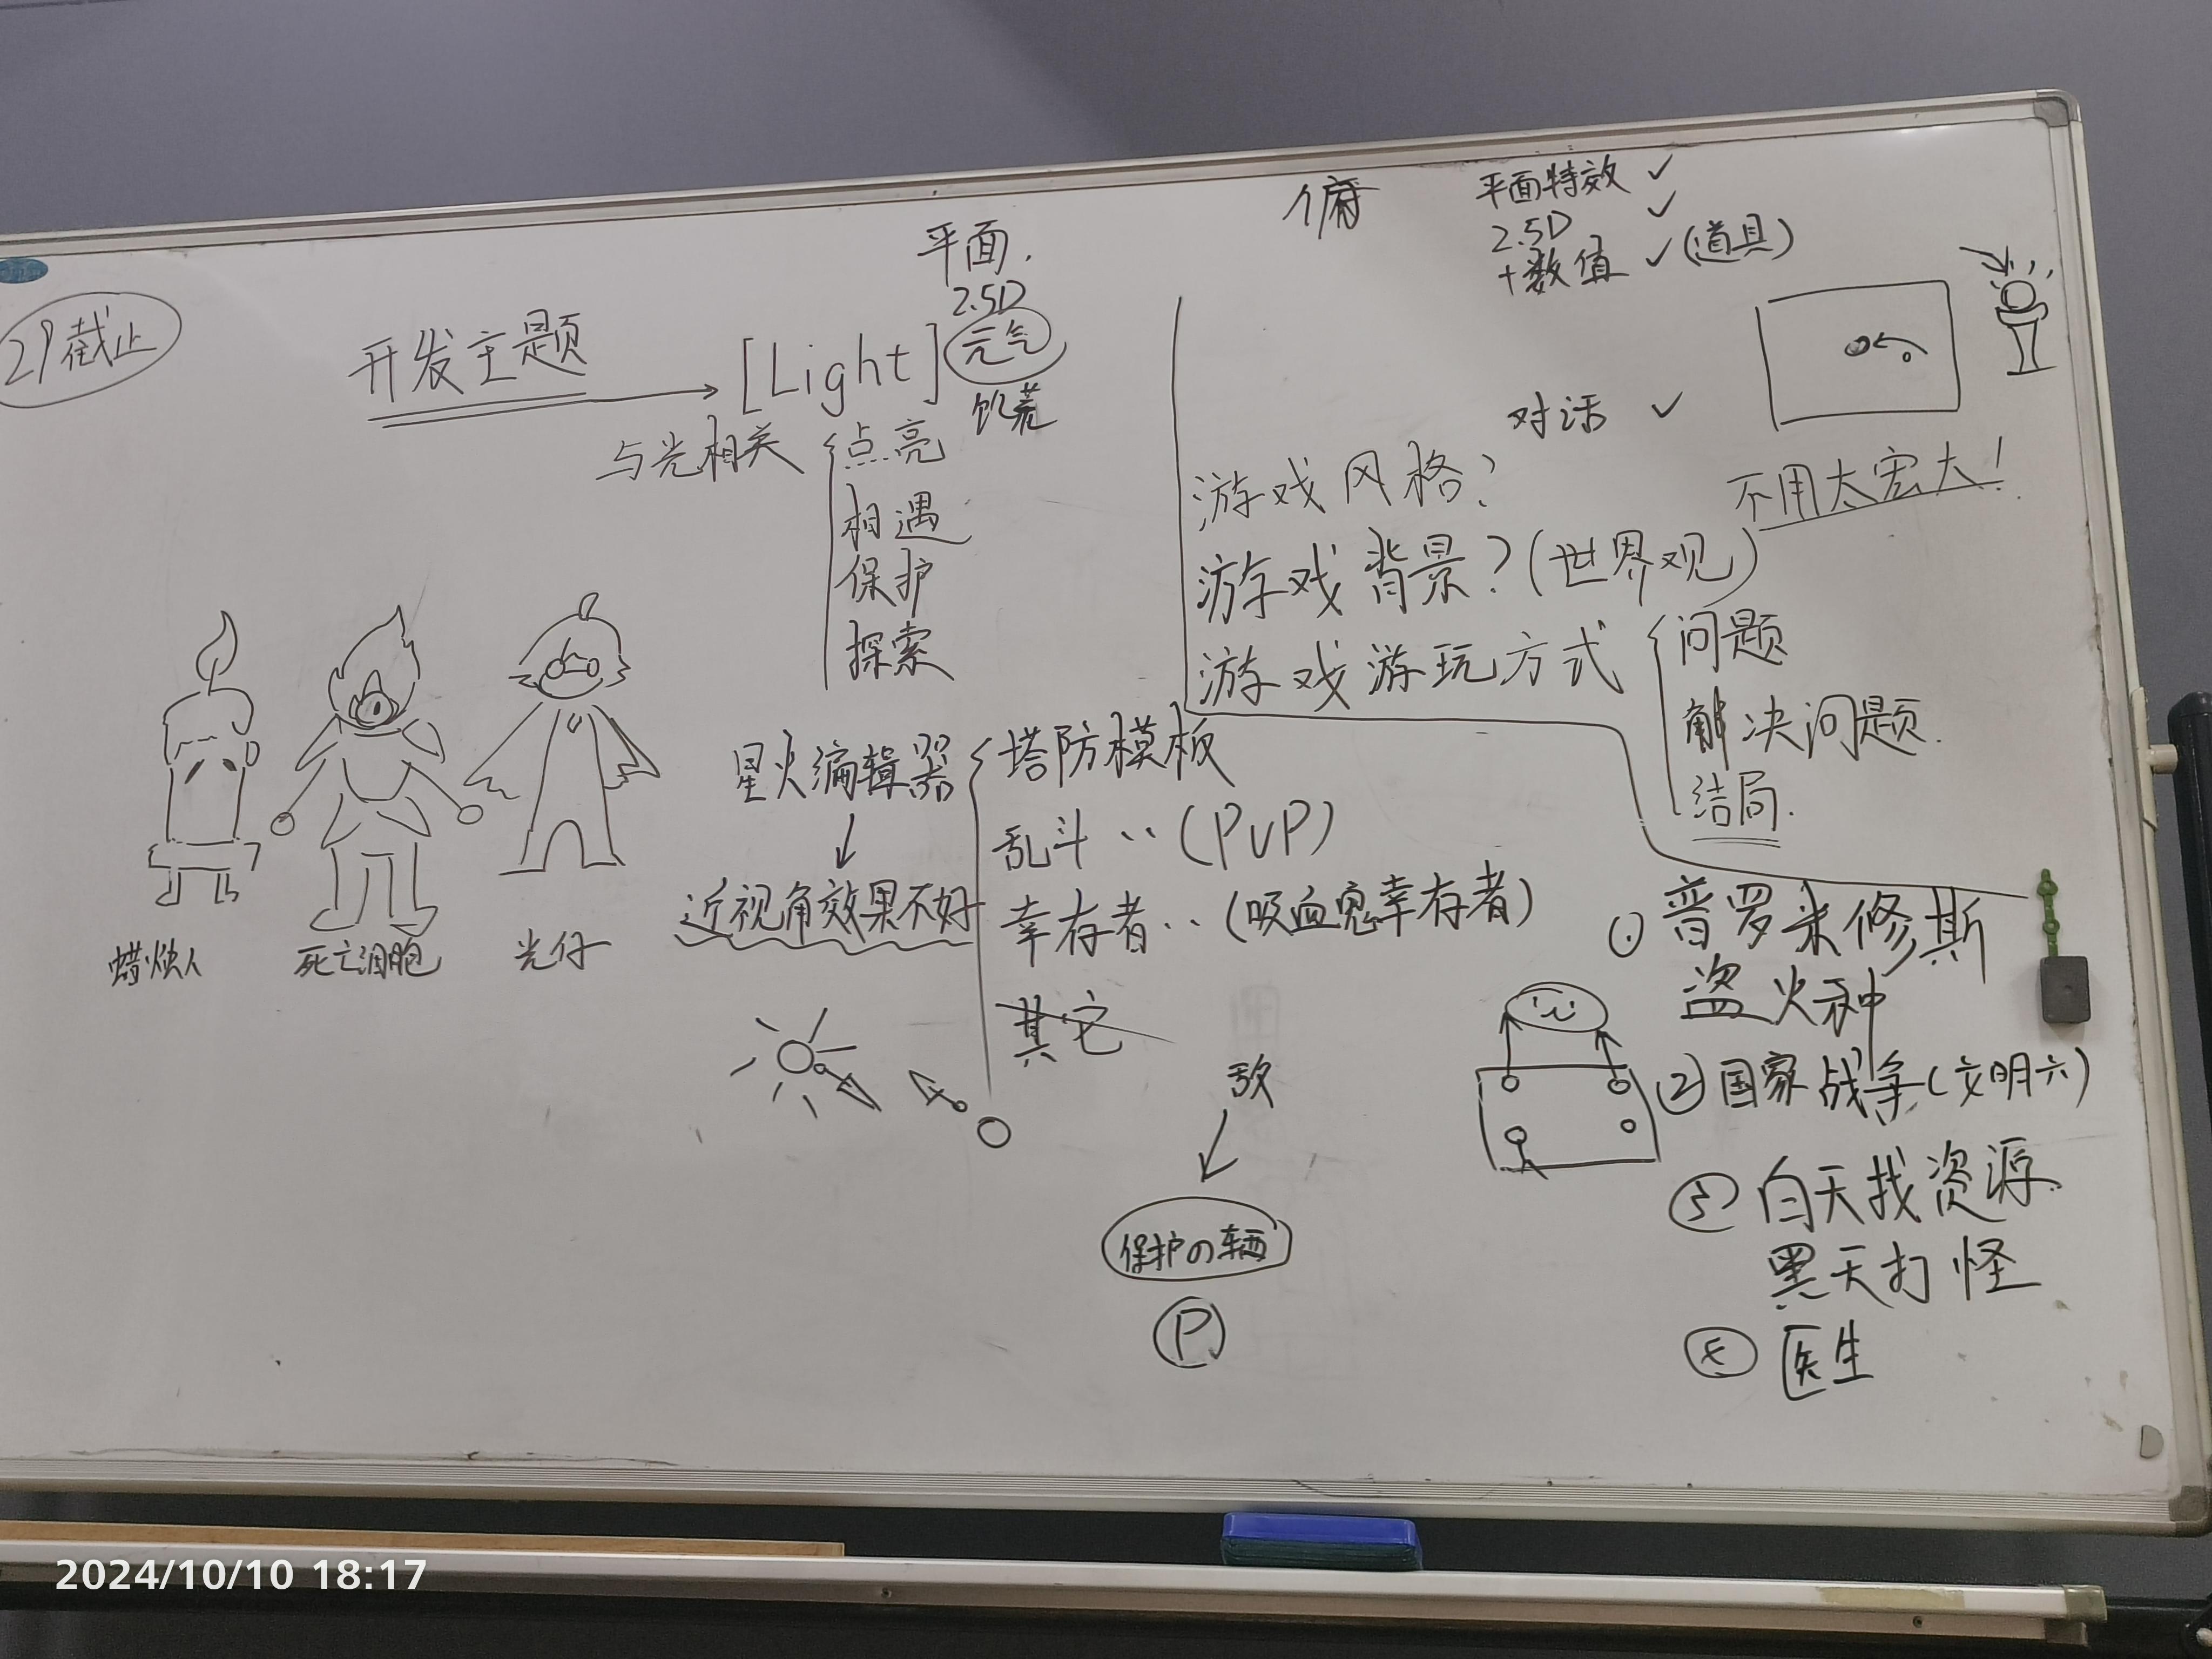 29截止
开发主题
[Light]
平面.
2.5D
元气
饥荒
与光相关
点亮
相遇
保护
探索
蜡烛人
死亡细胞
光仔
星火编辑器
近视角效果不好
塔防模板
乱斗 ‥ (PVP)
幸存者‥ (吸血鬼幸存者)
其它
敌
保护の辆
P
俯
平面特效 ✓
2.5D ✓
+数值 ✓(道具)
对话 ✓
不用太宏大!
游戏风格?
游戏背景?(世界观)
游戏游玩方式
问题
解决问题.
结局.
① 普罗米修斯
盗火种
② 国家战争(文明六)
③ 白天找资源
黑天打怪
④ 医生
2024/10/10 18:17